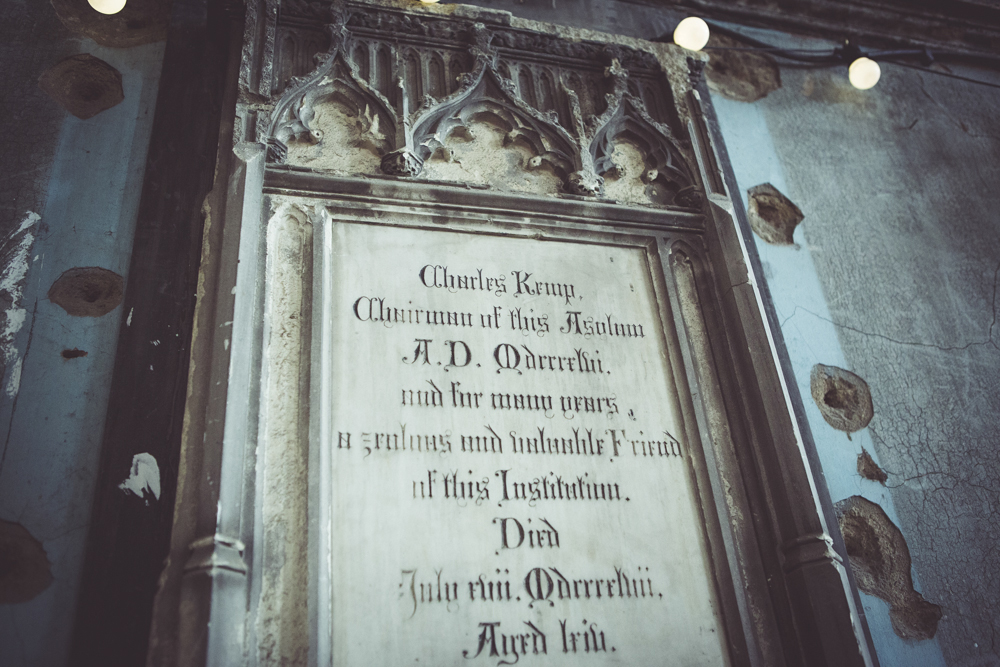 Charles Kemp,
Chairman of this Asylum
A.D. Mdcccxlvi.
and for many years
a zealous and valuable Friend
of this Institution.
Died
July xvii. Mdcccxlvii.
Aged lxiv.